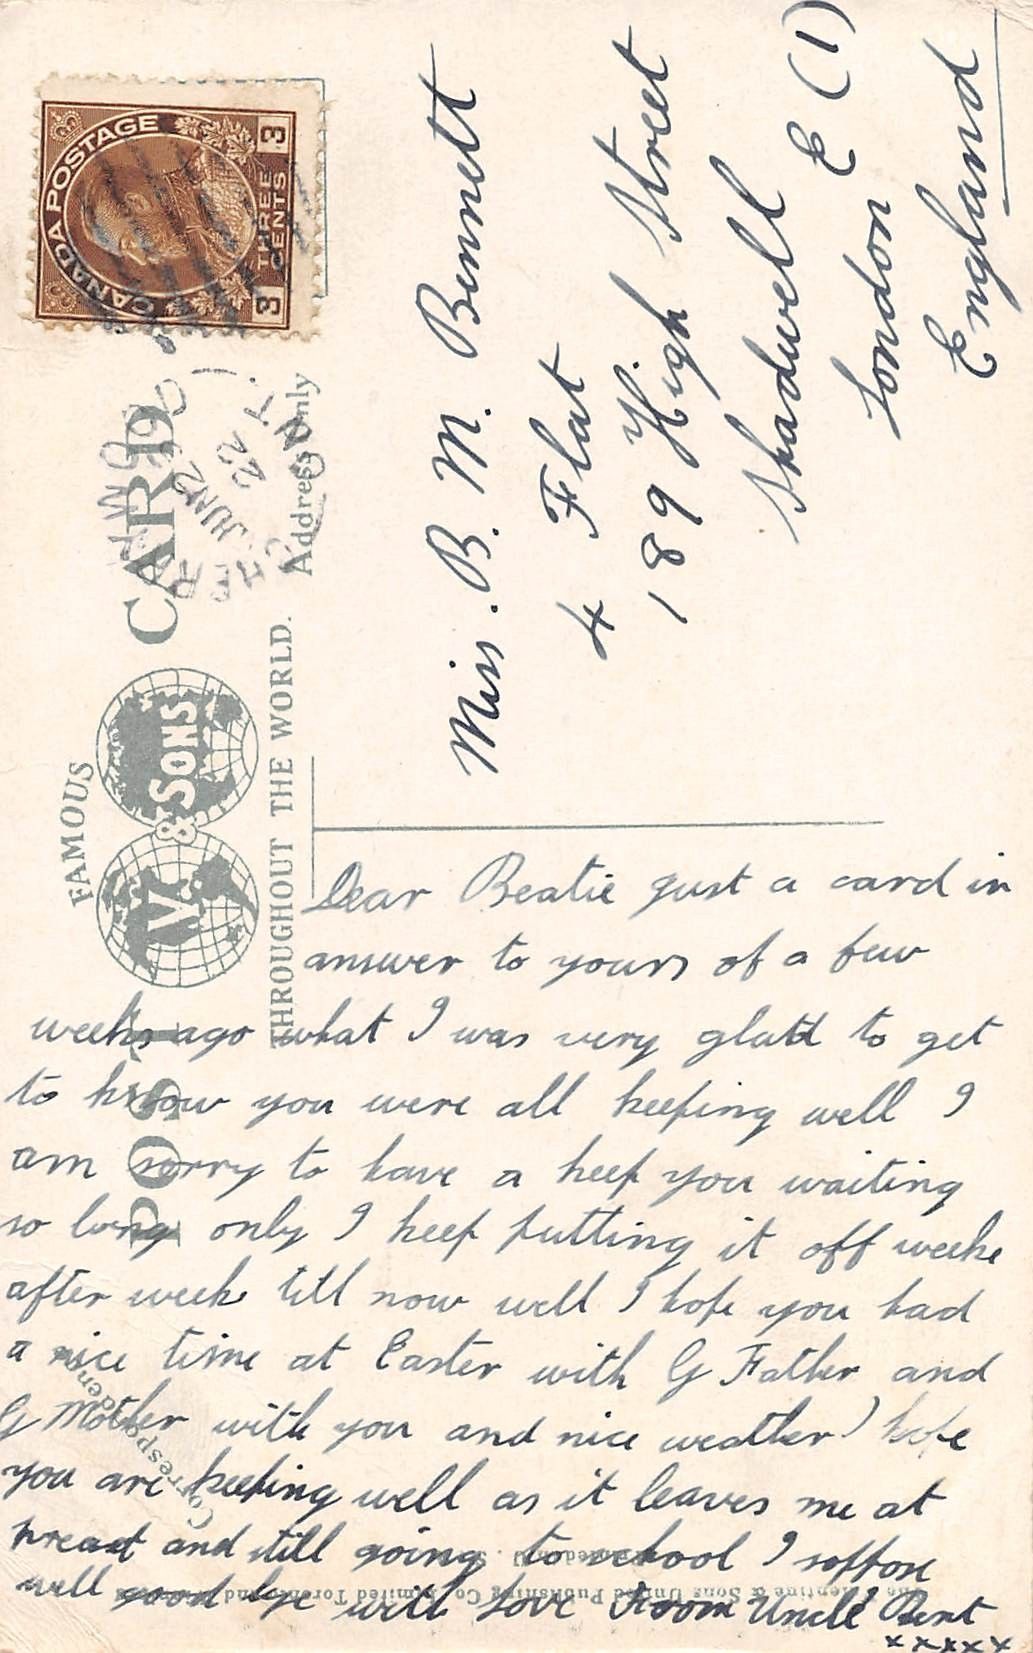 CANADA POSTAGE
3 THREE CENTS 3
JUN 2
22
FAMOUS
POST CARD
& SONS
THROUGHOUT THE WORLD.
Address Only
Miss. B. M. Bennett
4 Flat
189 High Street
Shadwell
London E (1)
England
Dear Beatie just a card in
answer to yours of a few
weeks ago what I was very glatd to get
to know you were all keeping well I
am sorry to have a keep you waiting
so long only I keep putting it off weeke
after week till now well I hope you had
a nice time at Easter with G Father and
G Mother with you and nice weather I hope
you are keeping well as it leaves me at
and still going to school I soppose
well good bye with Love Uncle Bert
xxxxx